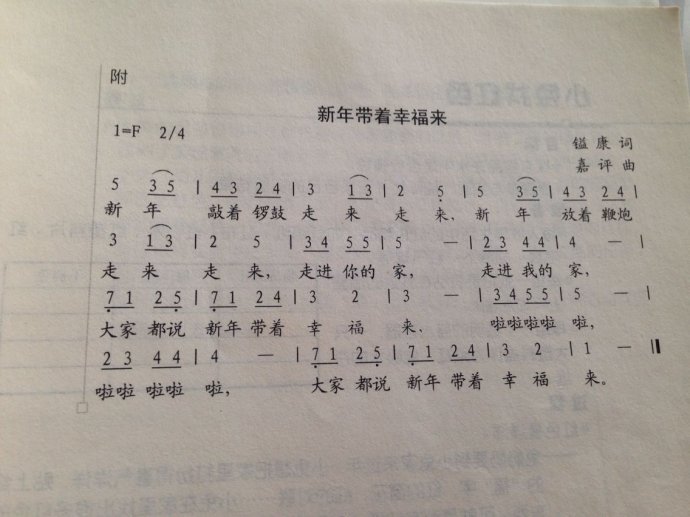 附
新年带着幸福来
1=F 2/4
锱康词
嘉评曲
5 3 5 | 4 3 2 4 | 3 1 3 | 2 5 | 5 3 5 | 4 3 2 4 |
新 年 敲着 锣鼓 走 来 走 来、 新 年 放着 鞭炮
3 1 3 | 2 5 | 3 4 5 5 | 5 — | 2 3 4 4 | 4 — |
走 来 走 来, 走进 你的 家, 走进 我的 家,
7 1 2 5 | 7 1 2 4 | 3 2 | 3 — | 3 4 5 5 | 5 — |
大家 都说 新年 带着 幸 福 来、 啦啦啦啦 啦,
2 3 4 4 | 4 — | 7 1 2 5 | 7 1 2 4 | 3 2 | 1 — ‖
啦啦 啦啦 啦, 大家 都说 新年 带着 幸 福 来。